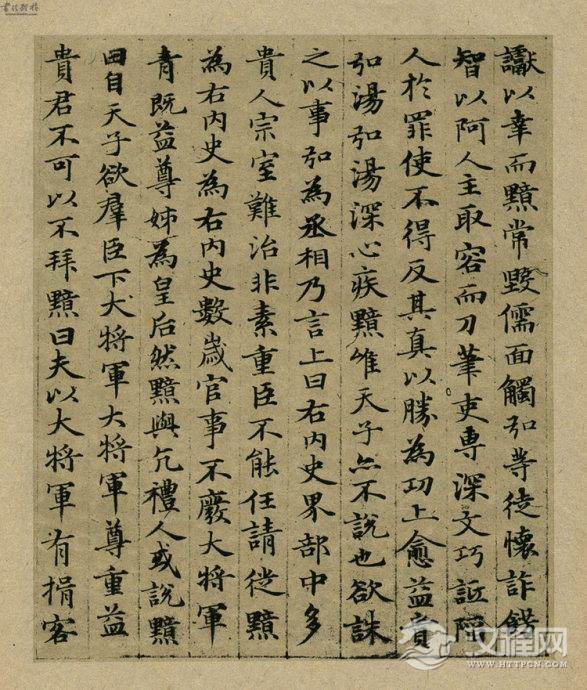 讞以幸而黯常毀儒面觸弘等徒懷詐飾
智以阿人主取容而刀筆吏專深文巧詆陷
人於罪使不得反其真以勝為功上愈益貴
弘湯弘湯深心疾黯唯天子亦不說也欲誅
之以事弘為丞相乃言上曰右內史界部中多
貴人宗室難治非素重臣不能任請徙黯
為右內史為右內史數歲官事不廢大將軍
青既益尊姊為皇后然黯與亢禮人或說黯
曰自天子欲羣臣下大將軍大將軍尊重益
貴君不可以不拜黯曰夫以大將軍有揖客
汉程网
HTTPCN.COM